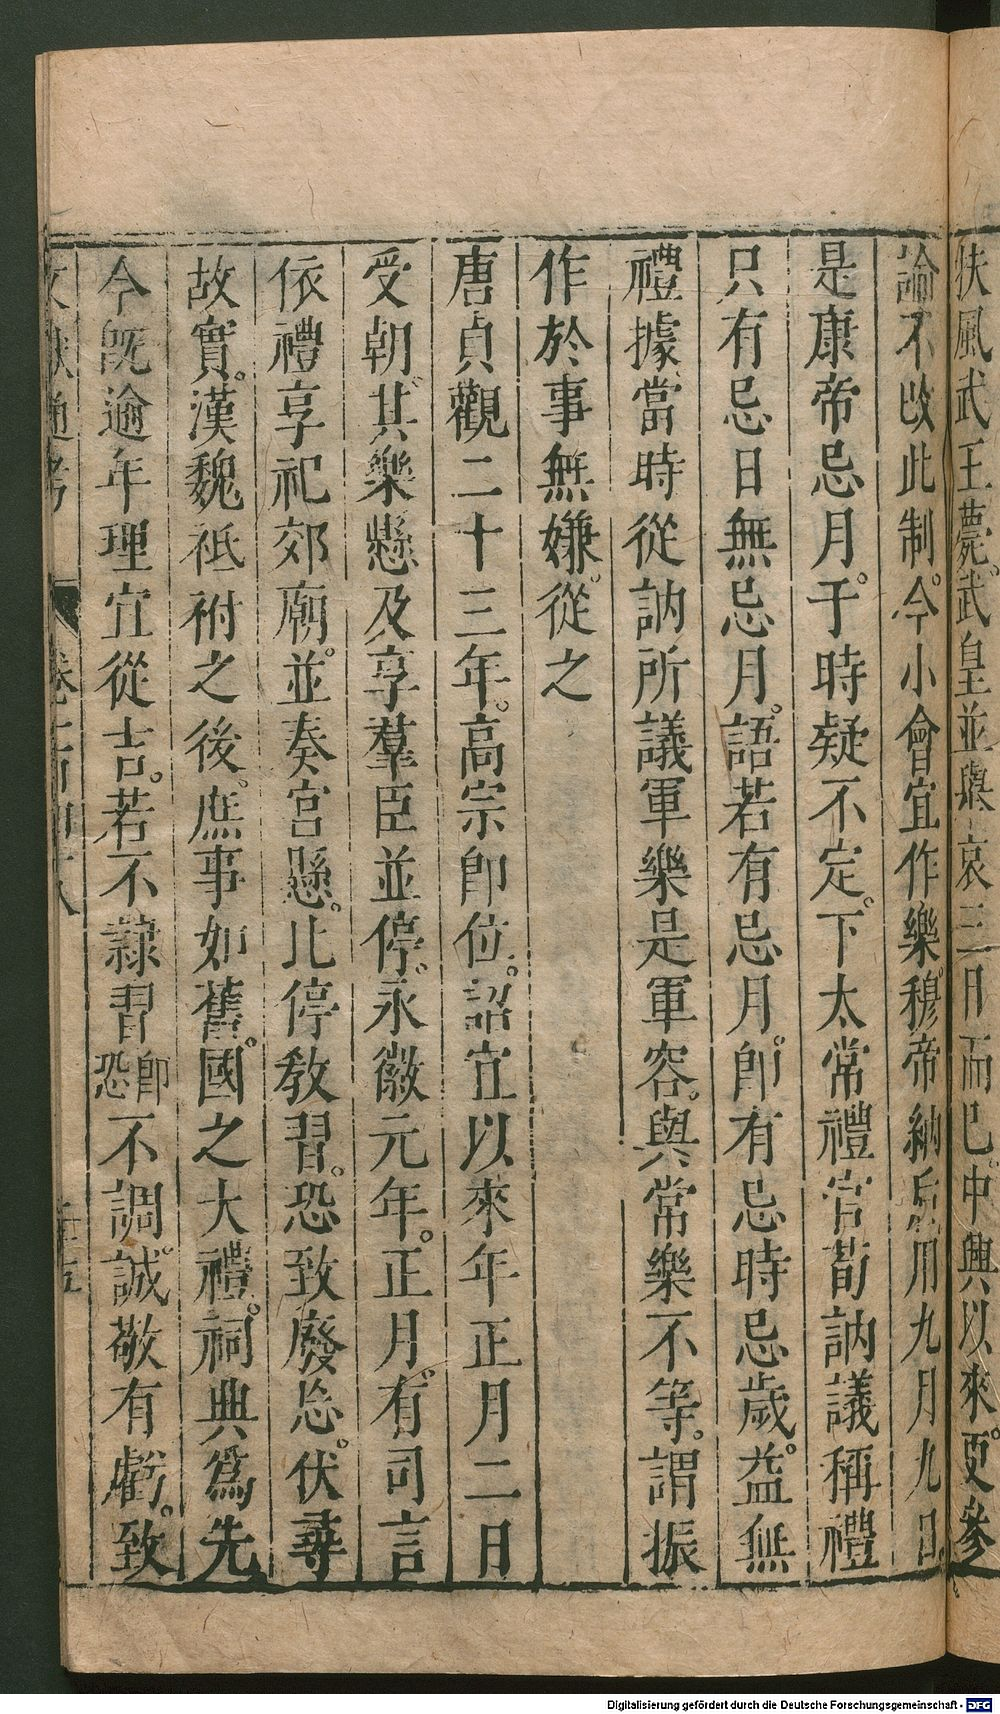 扶風武王薨武皇並舉哀三日而已中興以來更參
論不改此制今小會宜作樂穆帝納后用九月九日
是康帝忌月于時疑不定下太常禮官荀訥議稱禮
只有忌日無忌月語若有忌月即有忌時忌歲益無
禮據當時從訥所議軍樂是軍容與常樂不等謂振
作於事無嫌從之
唐貞觀二十三年高宗即位詔宜以來年正月二日
受朝其樂懸及享羣臣並停永徽元年正月有司言
依禮享祀郊廟並奏宮懸比停教習恐致廢忘伏尋
故實漢魏祗祔之後庶事如舊國之大禮祠典為先
今既逾年理宜從吉若不隸習即恐不調誠敬有虧致
文獻通考 卷一百四十八 二十五
Digitalisierung gefördert durch die Deutsche Forschungsgemeinschaft - DFG